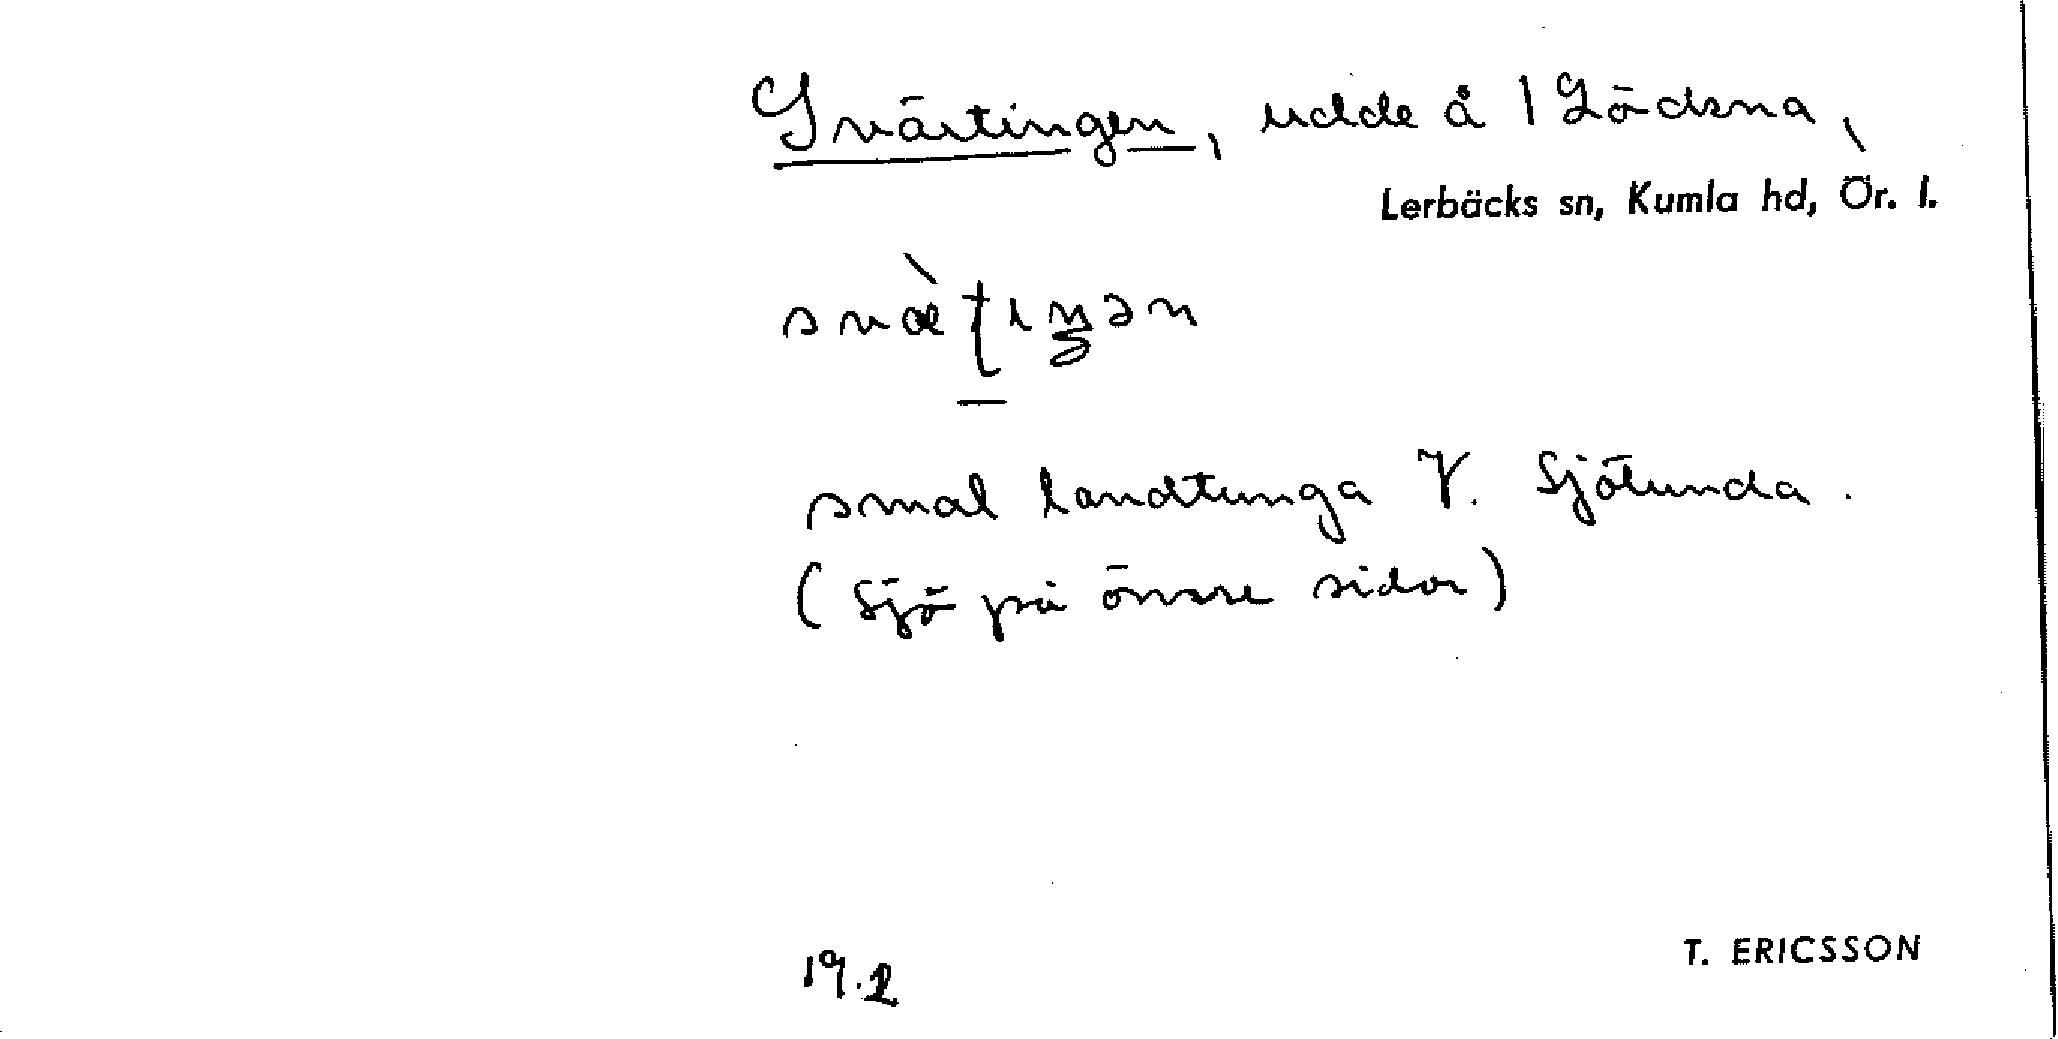 Svärtingen, udde å 1 Lödsna,
Lerbäcks sn, Kumla hd, Ör. l.
smal landtunga V. Sjölunda.
(Sjö på ömse sidor)
19.2
T. ERICSSON